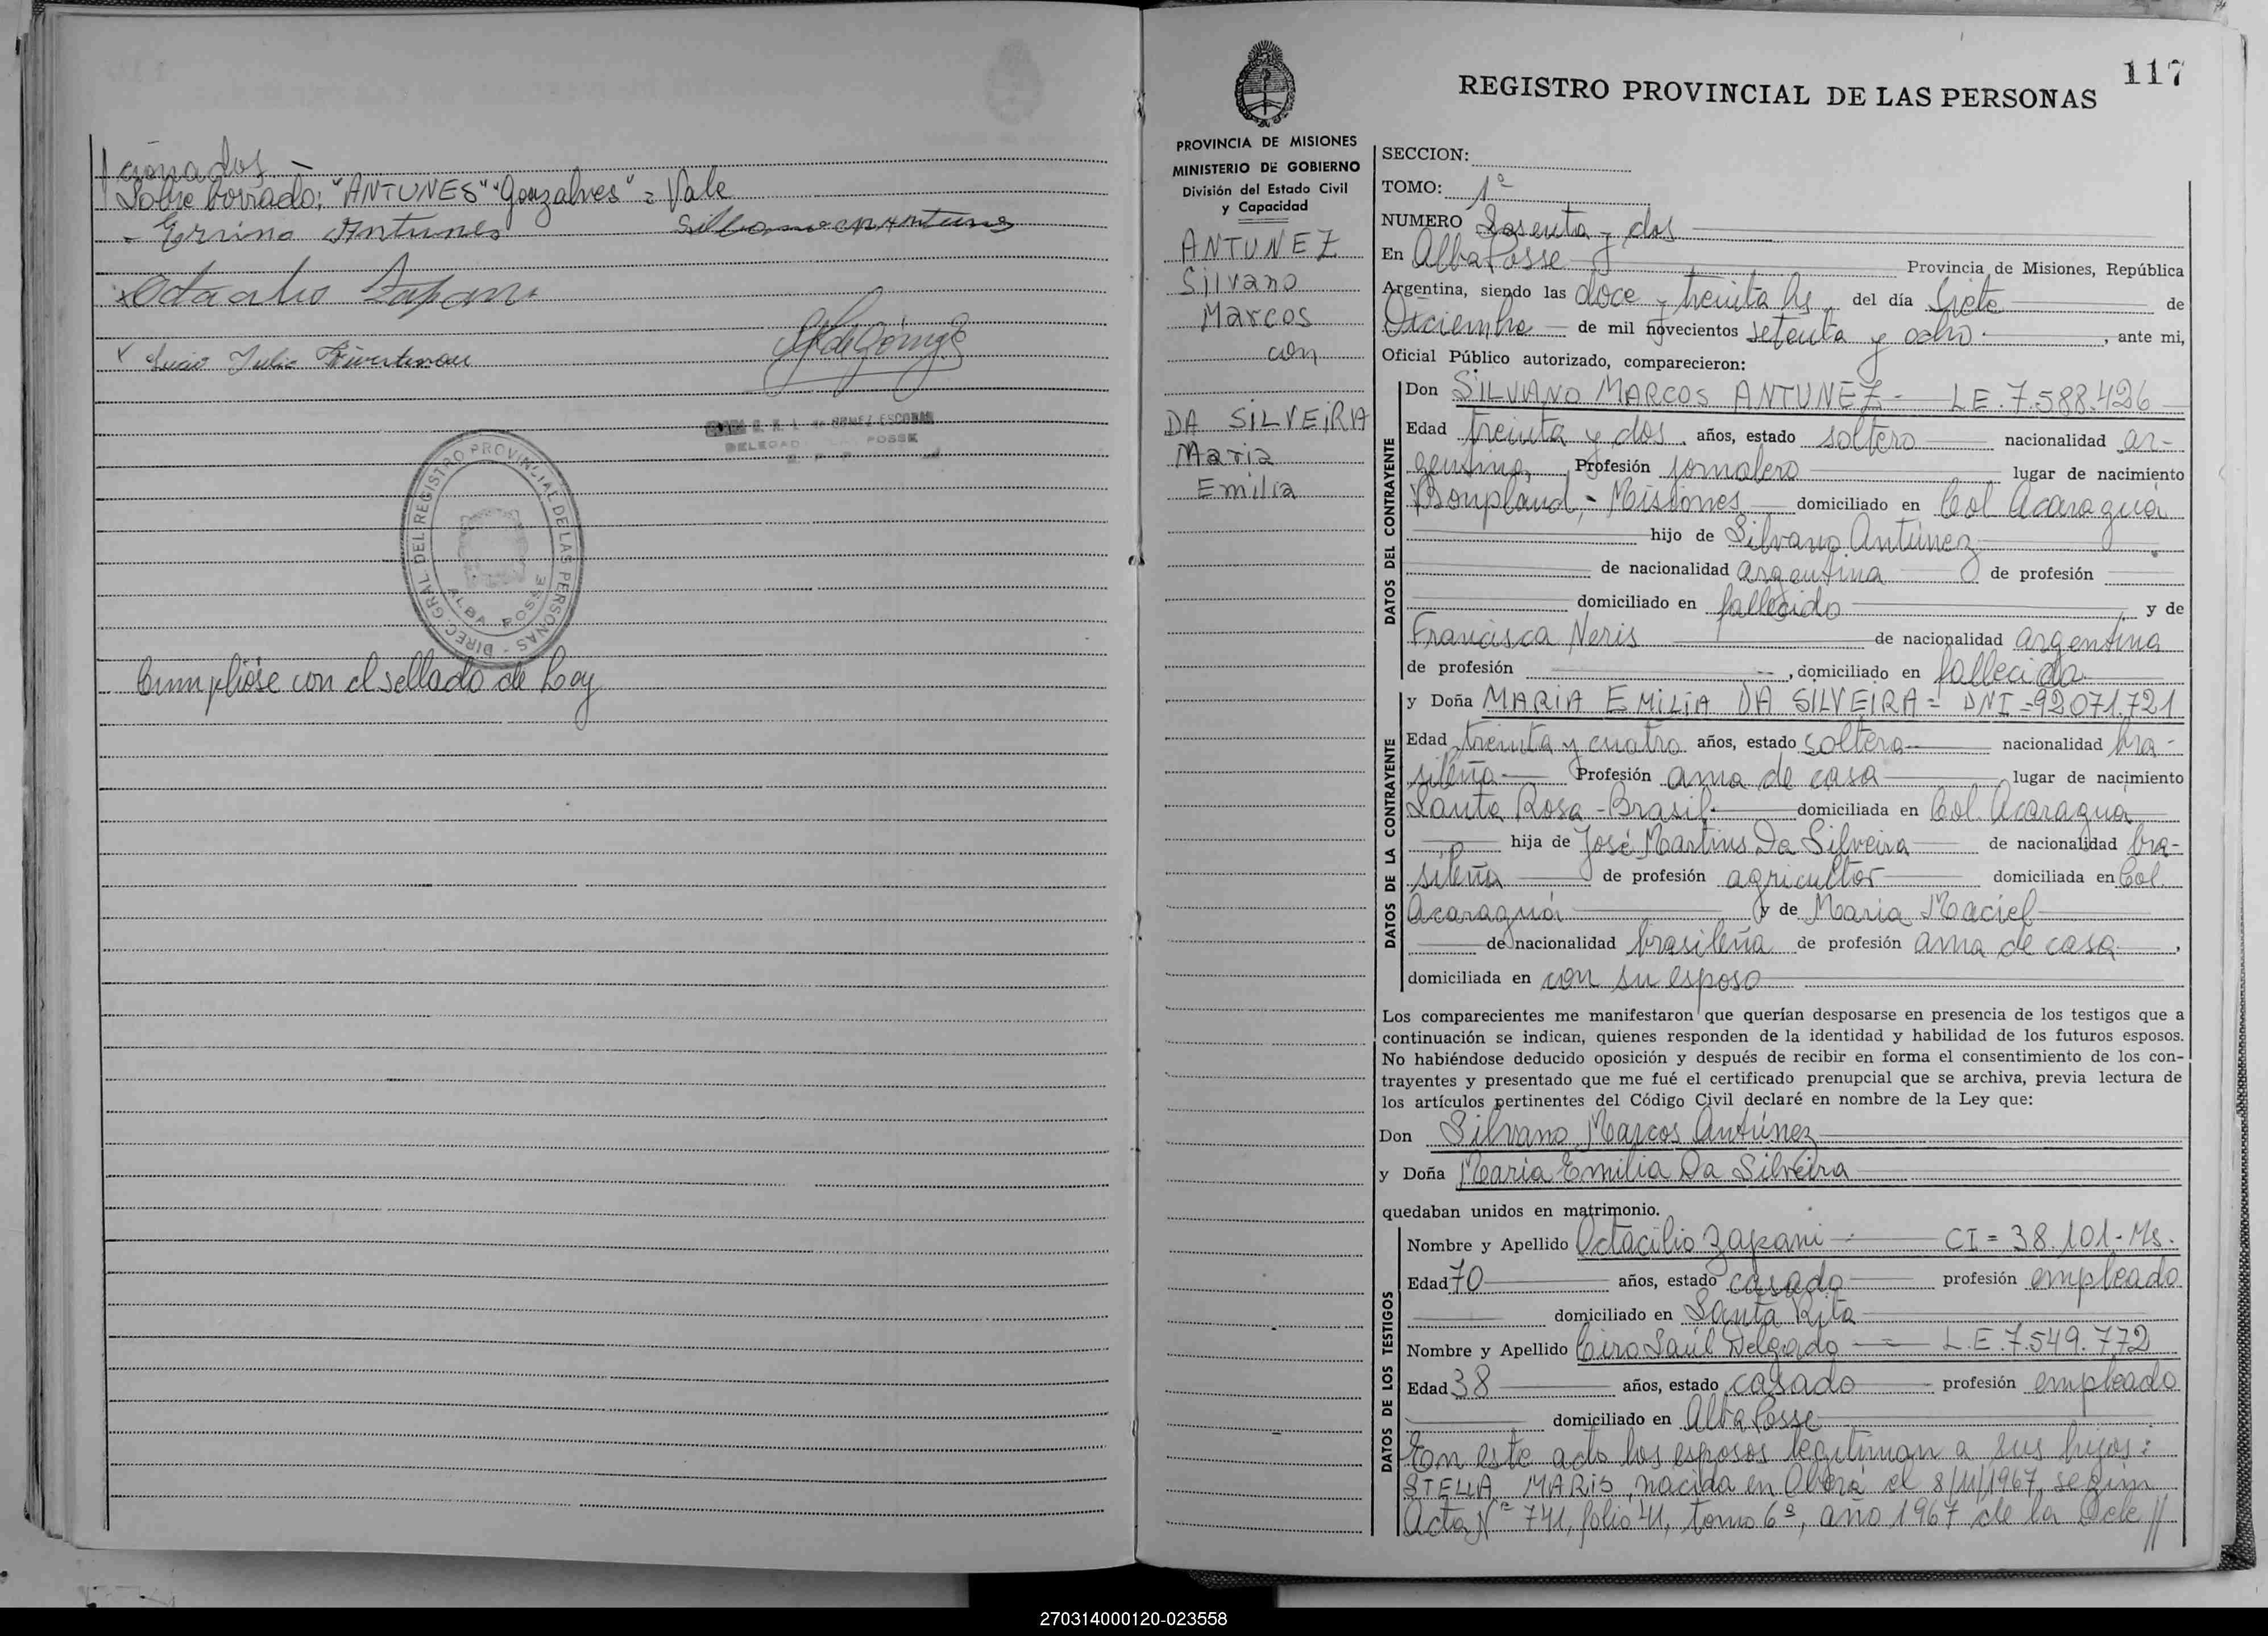 cionados.
Sobre borrado: "ANTUNES" "Gonzalves" = Vale
- Ersino Antunes
Octacilio Zapani
Lucio Julio
DIREC. GRAL. DEL REGISTRO PROVINCIAL DE LAS PERSONAS
ALBA POSSE
GOMEZ ESCOBAR
POSSE
Cumplióse con el sellado de Ley
117
REGISTRO PROVINCIAL DE LAS PERSONAS
PROVINCIA DE MISIONES
MINISTERIO DE GOBIERNO
División del Estado Civil
y Capacidad
ANTUNEZ
Silvano
Marcos
con
DA SILVEIRA
Maria
Emilia
SECCION:
TOMO: 1º
NUMERO Sesenta y dos
En Alba Posse Provincia de Misiones, República
Argentina, siendo las doce y treinta hs del día Siete de
Diciembre de mil novecientos setenta y ocho, ante mi,
Oficial Público autorizado, comparecieron:
DATOS DEL CONTRAYENTE
Don SILVANO MARCOS ANTUNEZ - LE. 7.588.426
Edad treinta y dos años, estado soltero nacionalidad ar-
gentina, Profesión jornalero lugar de nacimiento
Bonpland, - Misiones domiciliado en Col Acaraguá
hijo de Silvano Antúnez
de nacionalidad argentina de profesión
domiciliado en fallecido y de
Francisca Neris de nacionalidad argentina
de profesión , domiciliado en fallecida
DATOS DE LA CONTRAYENTE
y Doña MARIA EMILIA DA SILVEIRA = DNI = 92.071.721
Edad treinta y cuatro años, estado soltera nacionalidad bra-
sileña Profesión ama de casa lugar de nacimiento
Santa Rosa - Brasil domiciliada en Col. Acaragua
hija de José Martins Da Silveira de nacionalidad bra-
sileña de profesión agricultor domiciliada en Col.
Acaraguá y de Maria Maciel
de nacionalidad brasileña de profesión ama de casa,
domiciliada en con su esposo
Los comparecientes me manifestaron que querían desposarse en presencia de los testigos que a
continuación se indican, quienes responden de la identidad y habilidad de los futuros esposos.
No habiéndose deducido oposición y después de recibir en forma el consentimiento de los con-
trayentes y presentado que me fué el certificado prenupcial que se archiva, previa lectura de
los artículos pertinentes del Código Civil declaré en nombre de la Ley que:
Don Silvano Marcos Antúnez
y Doña Maria Emilia Da Silveira
quedaban unidos en matrimonio.
DATOS DE LOS TESTIGOS
Nombre y Apellido Octacilio Zapani CI = 38.101 - Ms.
Edad 70 años, estado casado profesión empleado
domiciliado en Santa Rita
Nombre y Apellido Ciro Saúl Delgado = L.E. 7.549.772
Edad 38 años, estado casado profesión empleado
domiciliado en Alba Posse
En este acto los esposos legitiman a sus hijos:
STELLA MARIS, nacida en Oberá el 8/11/1967, según
Acta Nº 741, folio 41, tomo 6º, año 1967 de la Dele//
270314000120-023558